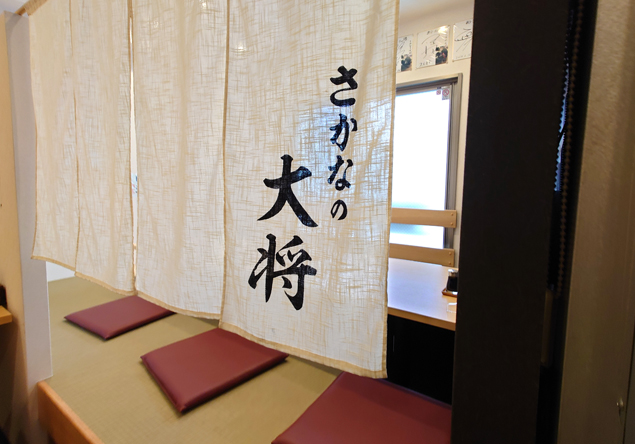 さかなの
大将